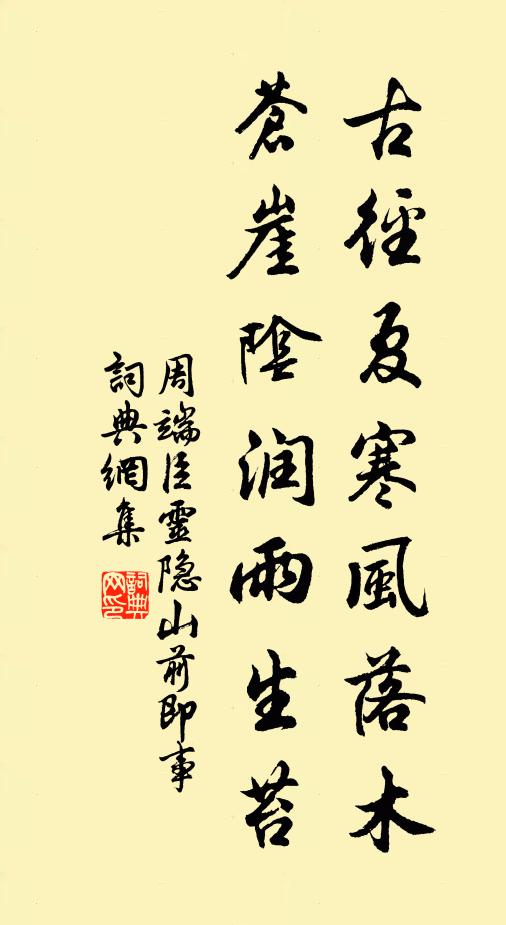 古徑夏寒風落木
蒼崖陰润雨生苔
周端臣靈隐山前即事
詞典網集
詞典網印